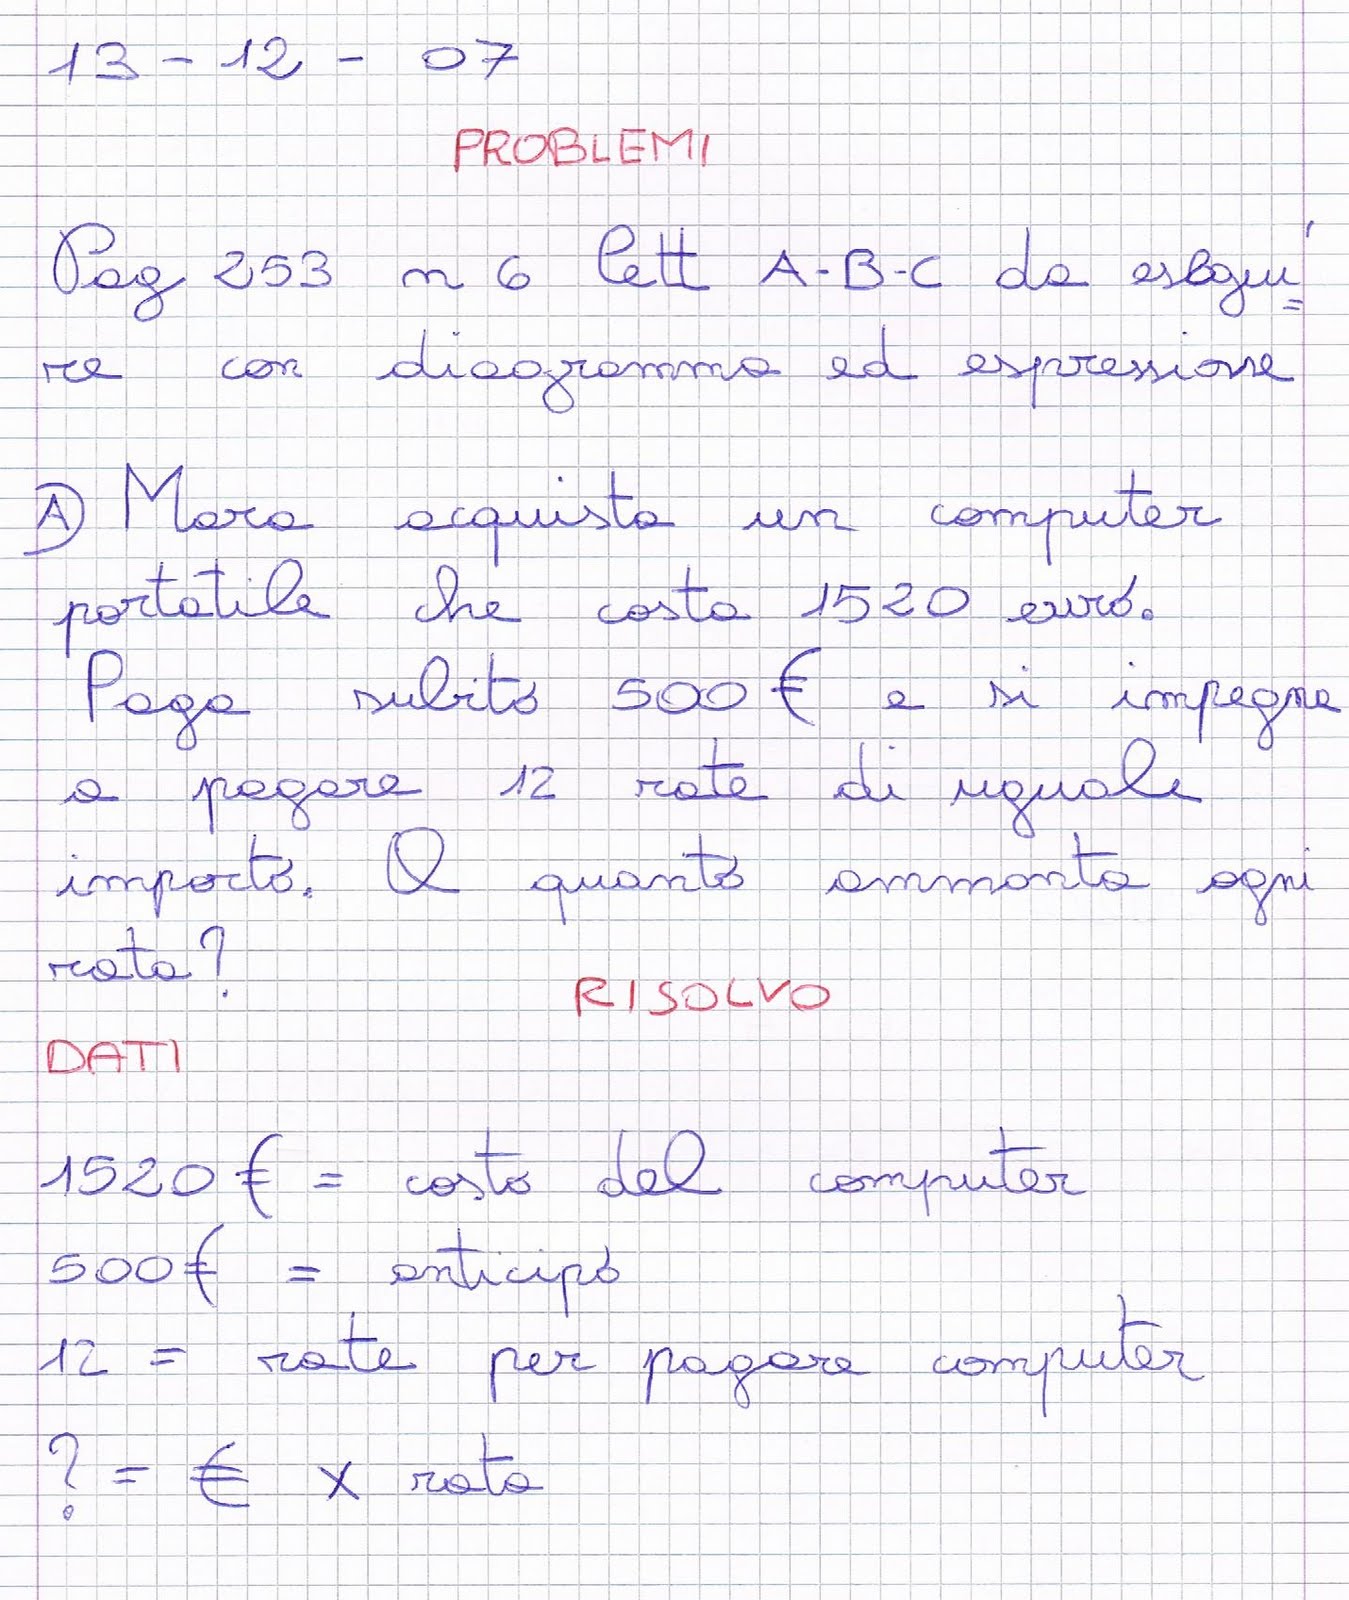 13 - 12 - 07
PROBLEMI
Pag 253 n 6 lett A-B-C da esegui=
re con diagramma ed espressione
A) Mara acquista un computer
portatile che costa 1520 euro.
Paga subito 500 € e si impegna
a pagare 12 rate di uguale
importo. A quanto ammonta ogni
rata?
RISOLVO
DATI
1520 € = costo del computer
500 € = anticipo
12 = rate per pagare computer
? = € x rata